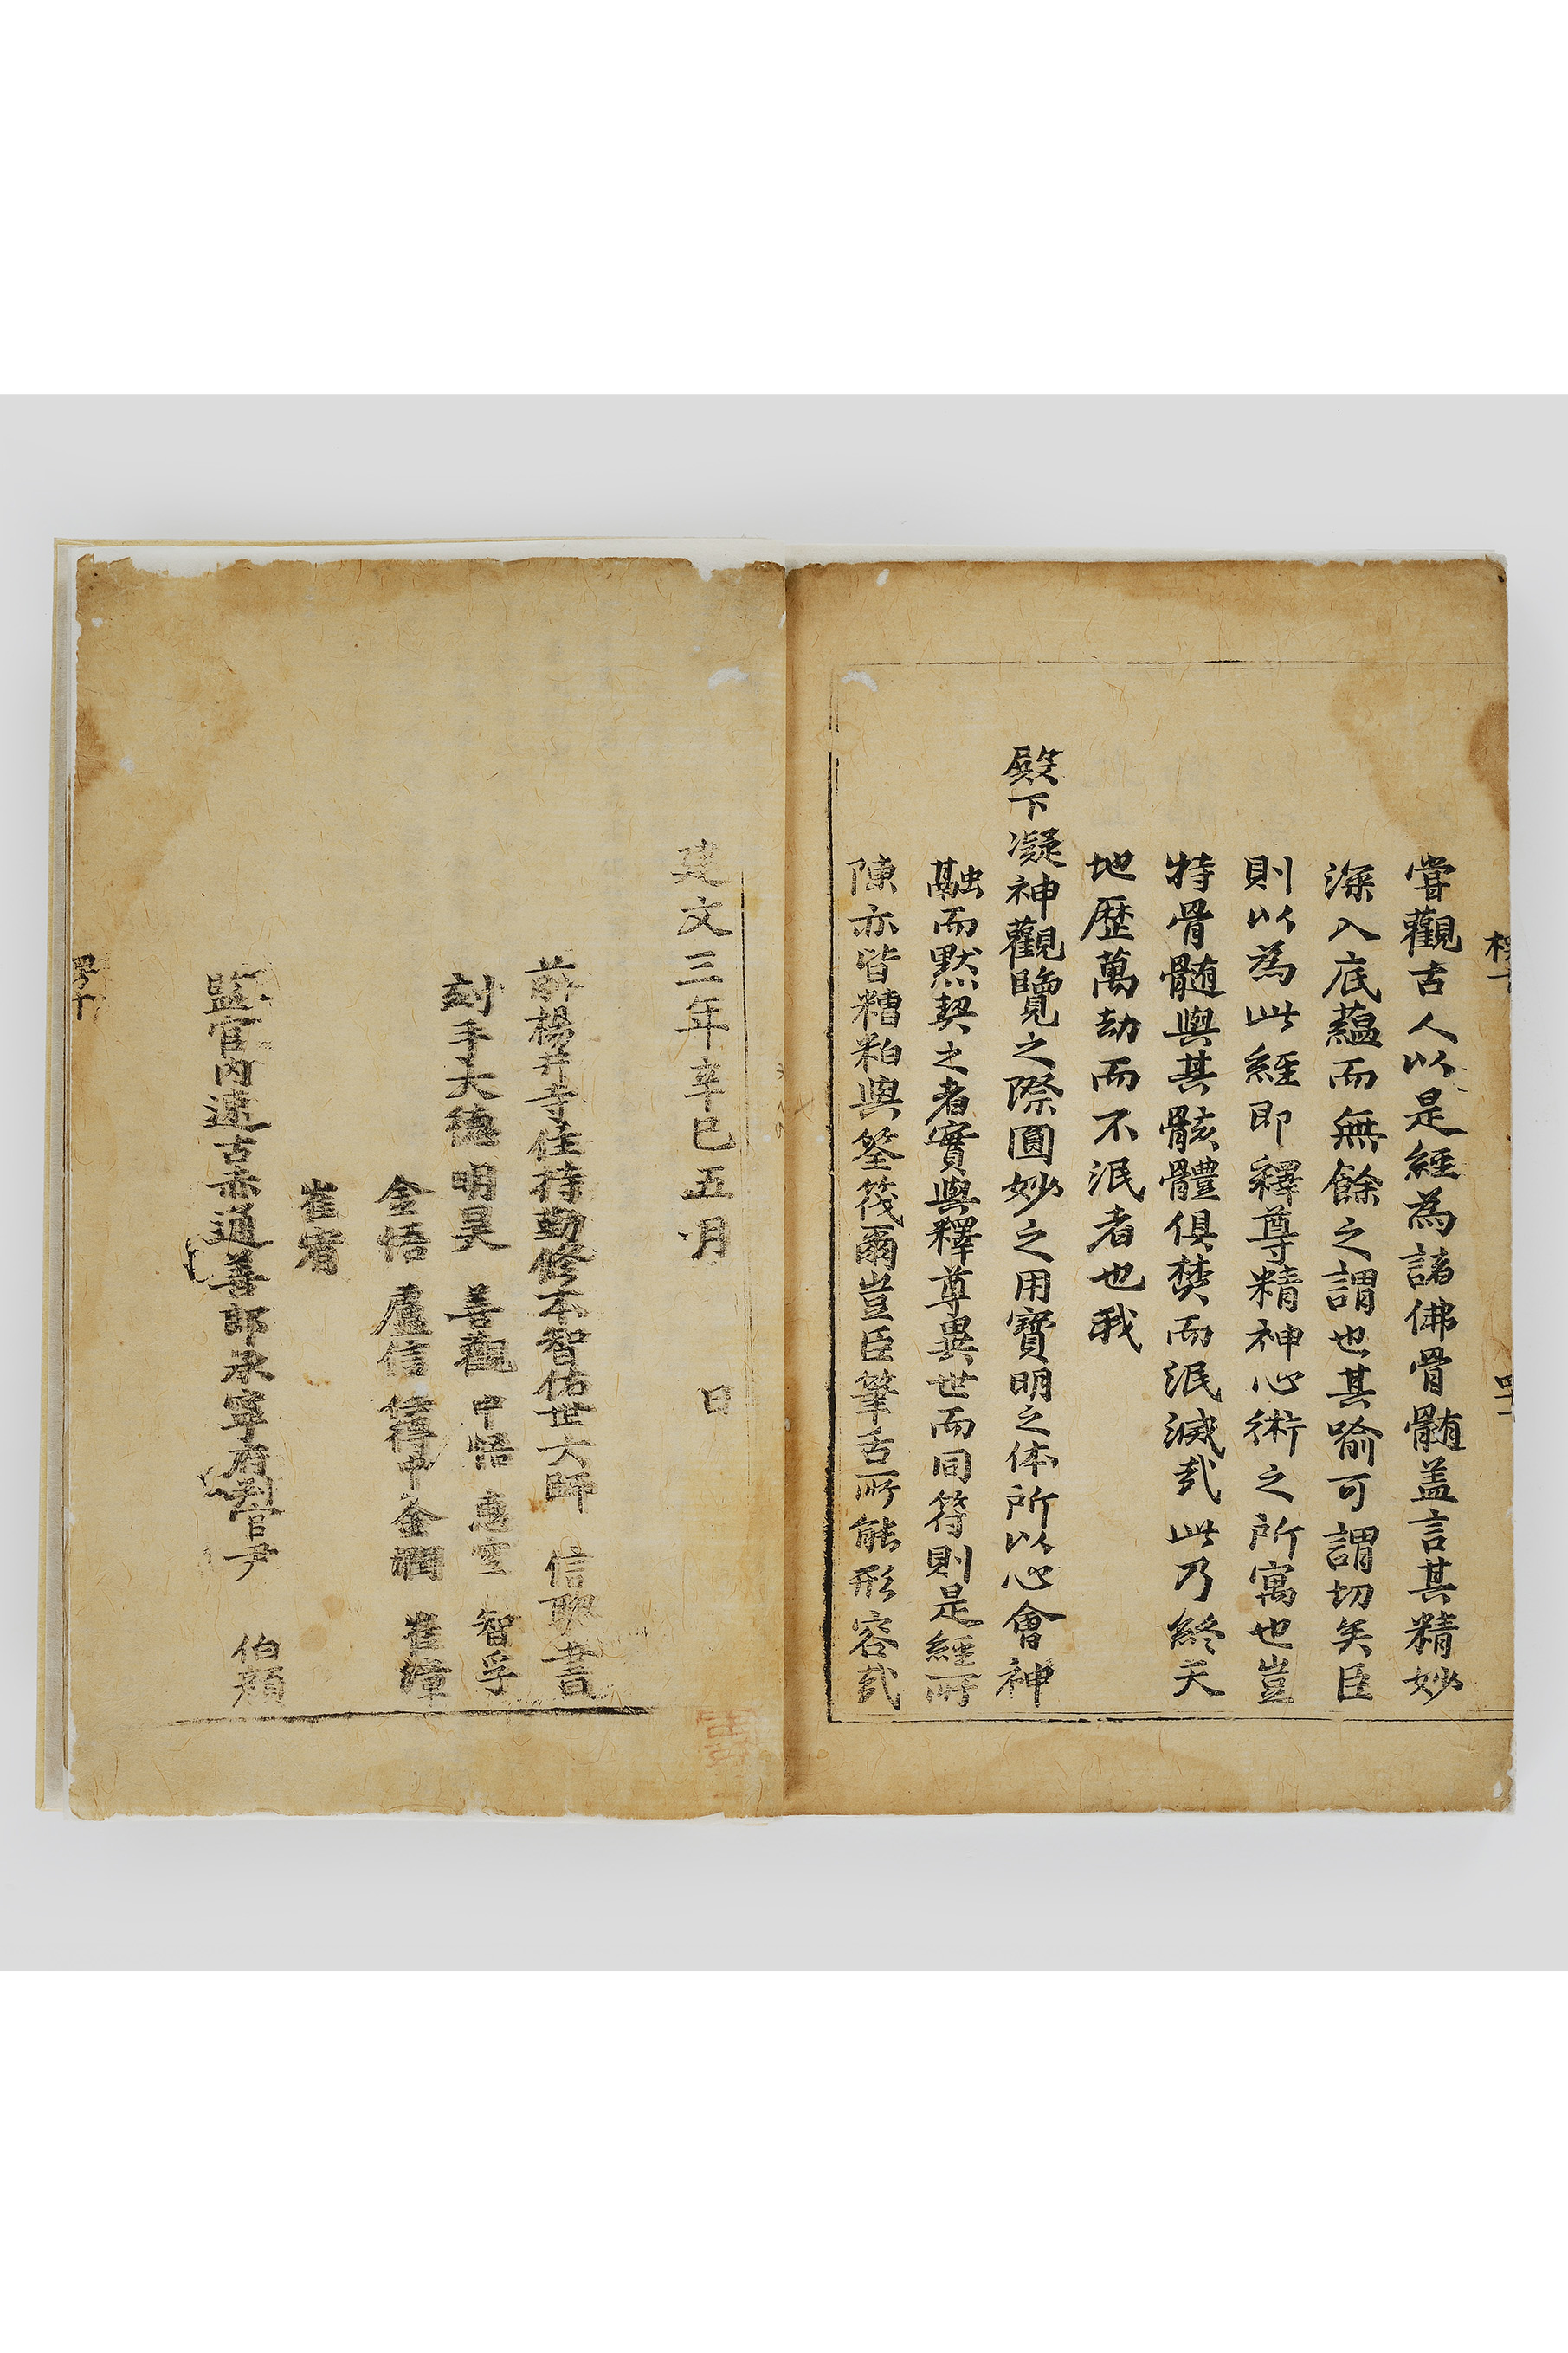 嘗觀古人以是經為諸佛骨髓盖言其精妙
深入底蘊而無餘之謂也其喻可謂切矣臣
則以為此經即釋尊精神心術之所寓也豈
特骨髓與其骸體俱焚而泯滅㢤此乃終天
地歴萬劫而不泯者也我
殿下凝神觀覽之際圓妙之用寶明之体所以心會神
融而黙契之者實與釋尊異世而同符則是經所
陳亦皆糟粕與筌筏爾豈臣筆舌所能形容㢤
建文三年辛巳五月 日
前楊井寺住持勤修本智佑世大師 信聰書
刻手大德 明昊 善觀 中悟 惠空 智孚
金悟 盧信 信得中 金潤 崔漳
崔宥
監官內速古赤通善郎承寧府判官尹 伯顔